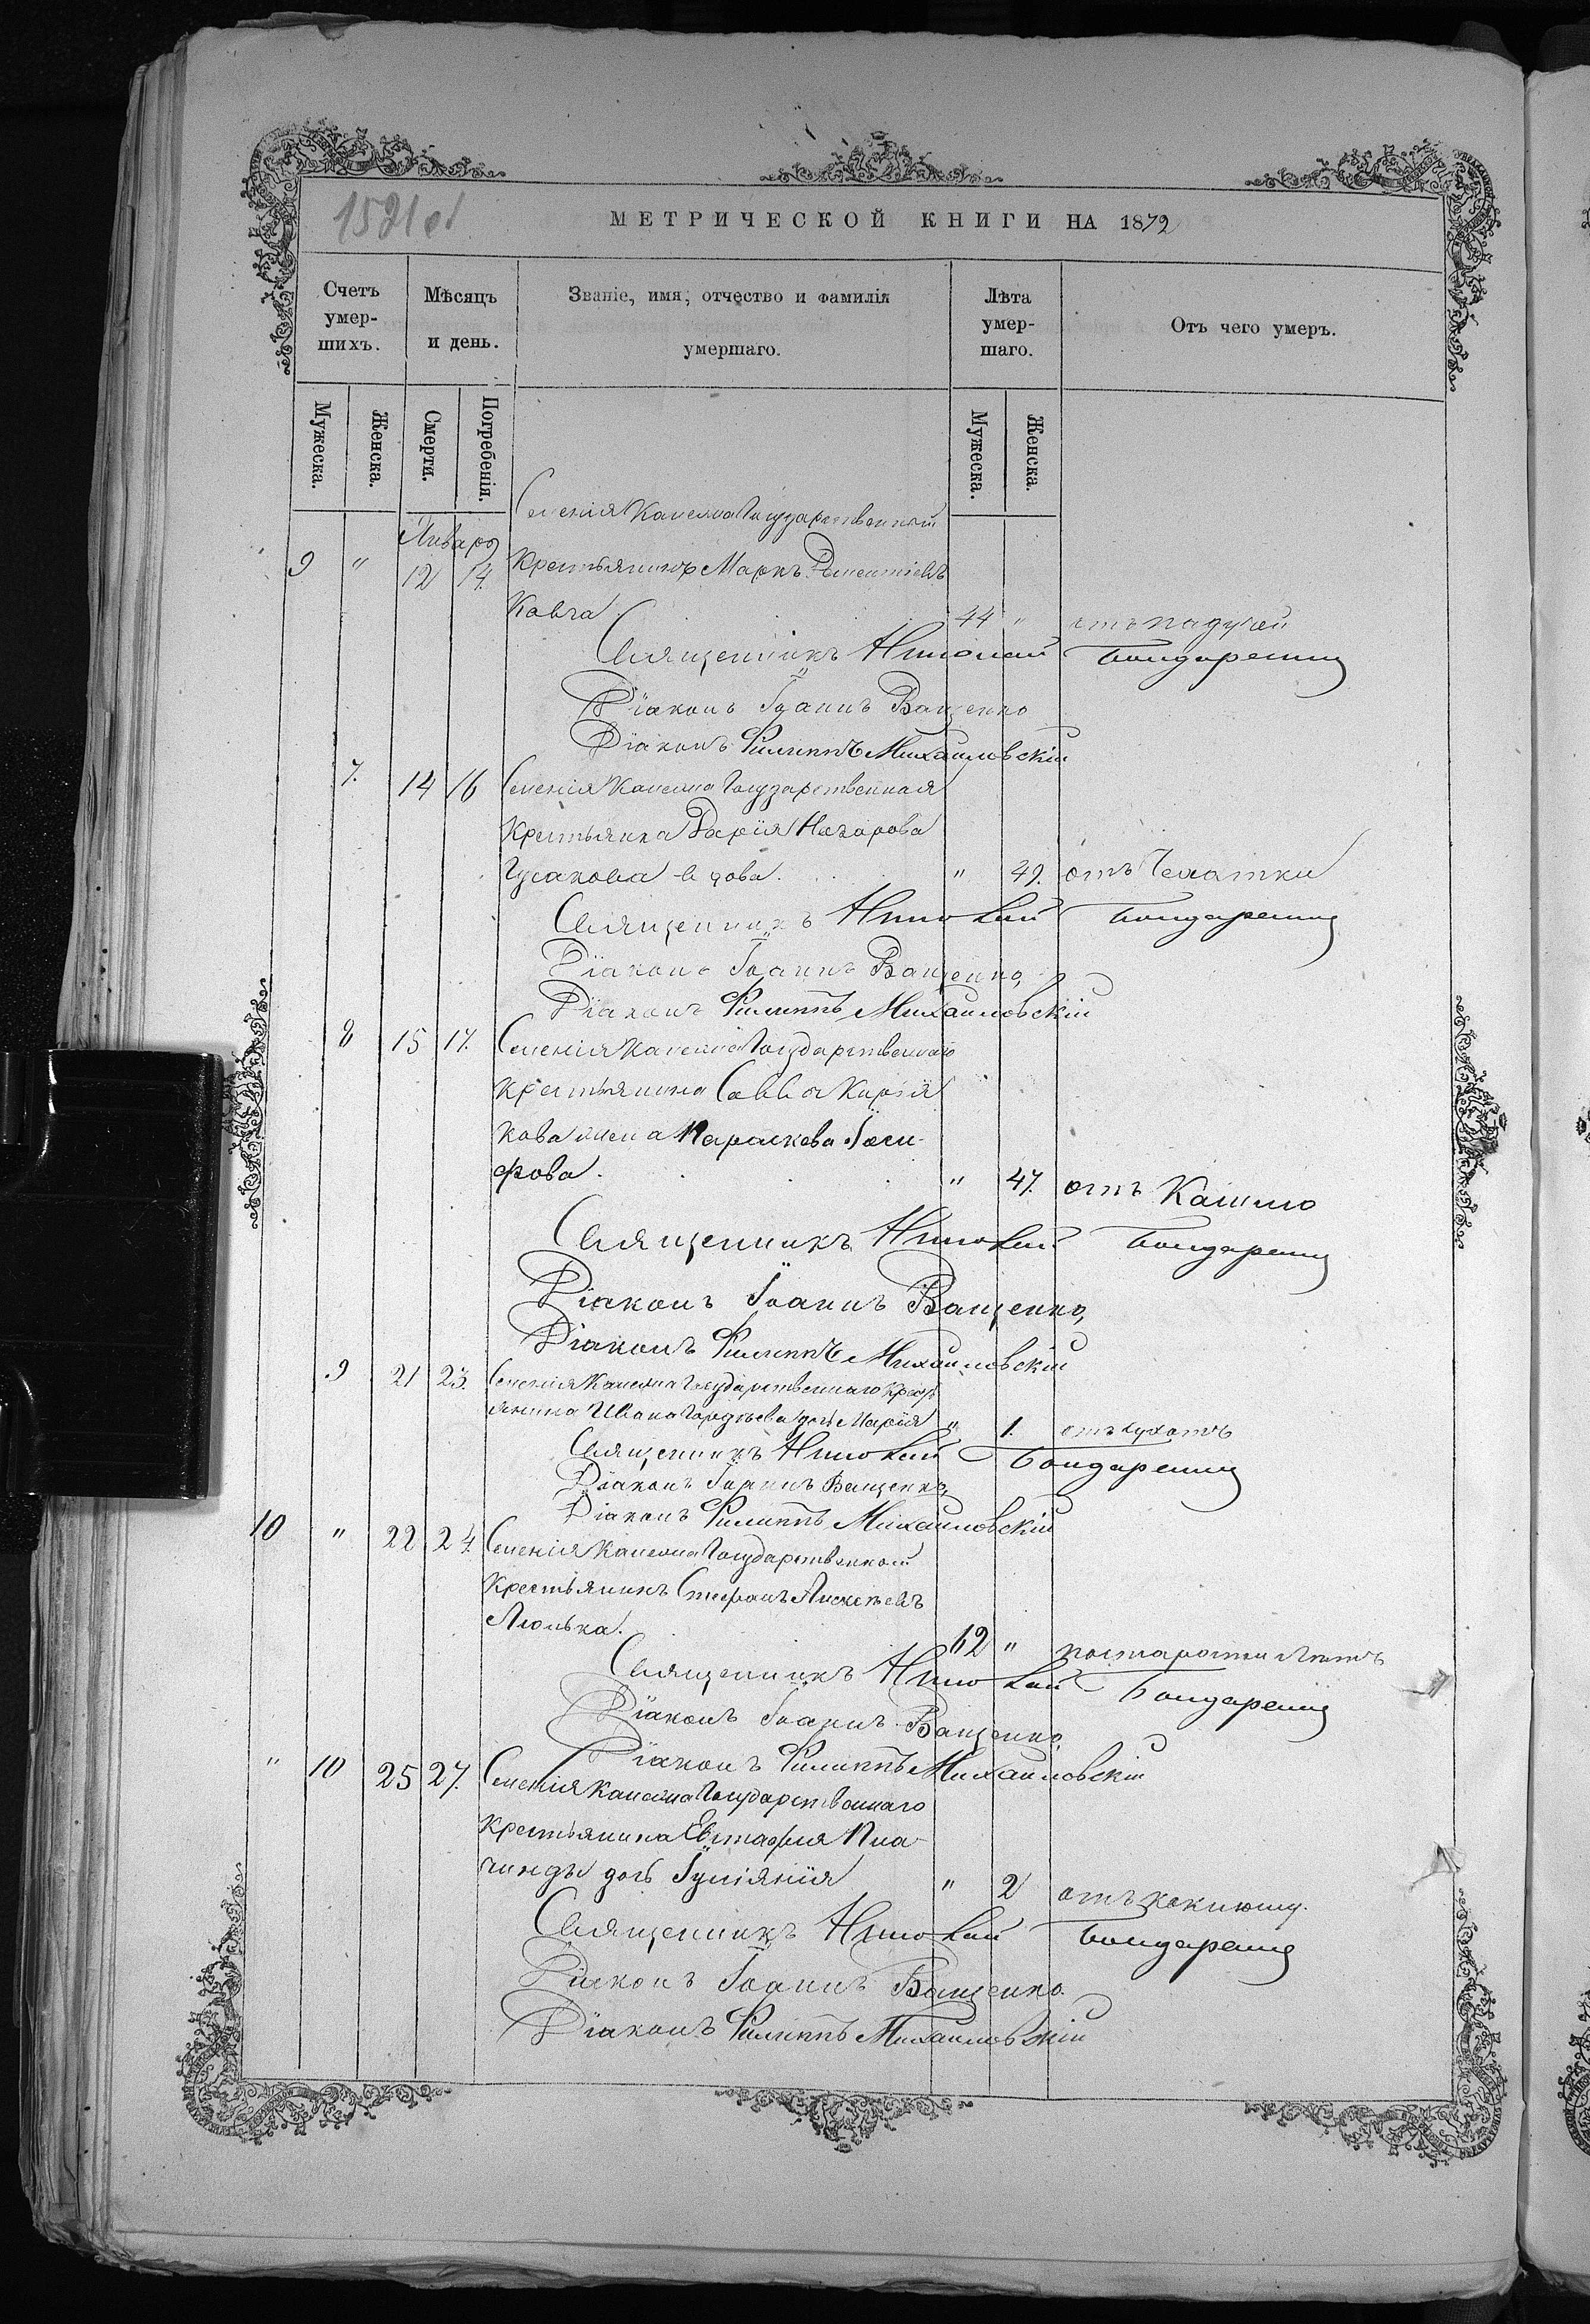 1521 об
МЕТРИЧЕСКОЙ КНИГИ НА 1872
Счетъ умер-шихъ.
Мѣсяцъ и день.
Званіе, имя, отчество и фамилія умершаго.
Лѣта умер-шаго.
Отъ чего умеръ.
Мужеска.
Женска.
Смерти.
Погребенія.
Мужеска.
Женска.
Января
Селенія Каменка Государственный
9 " 12 14. Крестьянинъ Маркъ
Кавча 44 " отъ падучей
Священникъ Николай Бондаренко
Діаконъ Іоаннъ Ващенко
Діаконъ Филиппъ Михайловскій
7. 14 16 Селенія Каменка Государственная
Крестьянка Дарія Назарова
Гусакова вдова. " 49. отъ
Священникъ Николай Бондаренко
Діаконъ Іоаннъ Ващенко,
Діаконъ Филиппъ Михайловскій
8 15 17. Селенія Каменка Государственнаго
Крестьянина Саввы
кова жена Параскева Іоси-
фова. " 47. отъ Кашлю
Священникъ Николай Бондаренко
Діаконъ Іоаннъ Ващенко,
Діаконъ Филиппъ Михайловскій
9 21 23. Селенія Каменка Государственнаго Крест
янина Ивана Гордѣева дочь Марія " 1. отъ сухотъ
Священникъ Николай Бондаренко
Діаконъ Іоаннъ Ващенко,
Діаконъ Филиппъ Михайловскій
10 " 22 24. Селенія Каменка Государственной
Крестьянинъ Стефанъ
Люлька. 62 " по старости лѣтъ
Священникъ Николай Бондаренко
Діаконъ Іоаннъ Ващенко,
Діаконъ Филиппъ Михайловскій
" 10 25 27. Селенія Каменка Государственнаго
Крестьянина Евстафія
дочь Іуліянія " 2 отъ коклюшу.
Священникъ Николай Бондаренко
Діаконъ Іоаннъ Ващенко.
Діаконъ Филиппъ Михайловскій